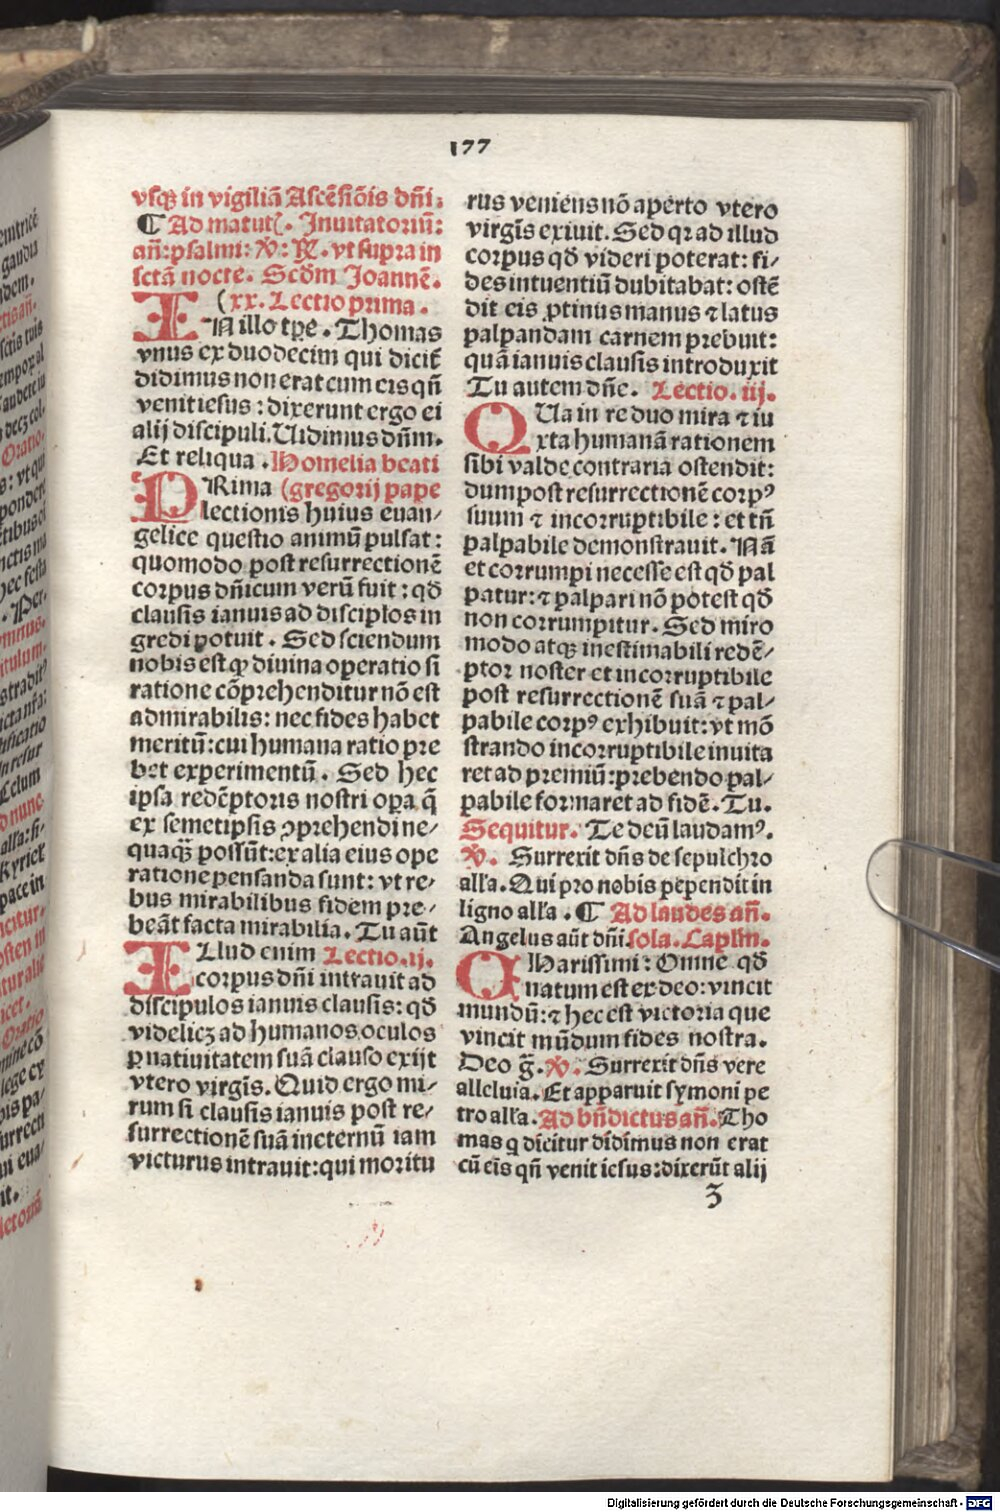 177
vsqꝫ in vigiliā Ascēsiōis dñi:
¶ Ad matutꝭ. Inuitatoriū:
añ: psalmi: ꝟ: ꝶ. vt supra in
sctā nocte. Scd̄m Joannē.
(xx. Lectio prima.
IN illo tp̄e. Thomas
vnus ex duodecim qui dicit̄
didimus non erat cum eis qñ
venit iesus: dixerunt ergo ei
alij discipuli. Uidimus dñm.
Et reliqua. Homelia beati
PRima (gregorij pape
lectionis huius euan/
gelice questio animū pulsat:
quomodo post resurrectionē
corpus dñicum verū fuit: qd̄
clausis ianuis ad disciplos in
gredi potuit. Sed sciendum
nobis est ꝙ diuina operatio si
ratione cōprehenditur nō est
admirabilis: nec fides habet
meritū: cui humana ratio pre
bet experimentū. Sed hec
ipsa redēptoris nostri opa q̄
ex semetipsis ꝯprehendi ne/
quaqꝫ possūt: ex alia eius ope
ratione pensanda sunt: vt re/
bus mirabilibus fidem pre/
beāt facta mirabilia. Tu aūt
ILlud enim Lectio. ij.
corpus dñi intrauit ad
discipulos ianuis clausis: qd̄
videlicꝫ ad humanos oculos
ꝑ natiuitatem suā clauso exijt
vtero virgīs. Quid ergo mi/
rum si clausis ianuis post re/
surrectionē suā in eternū iam
victurus intrauit: qui moritu
rus veniens nō aperto vtero
virgīs exiuit. Sed qꝛ ad illud
corpus qd̄ videri poterat: fi/
des intuentiū dubitabat: ostē
dit eis ꝓtinus manus ⁊ latus
palpandam carnem prebuit:
quā ianuis clausis introduxit
Tu autem dñe. Lectio. iij.
QUa in re duo mira ⁊ iu
xta humanā rationem
sibi valde contraria ostendit:
dum post resurrectionē corpꝰ
suum ⁊ incorruptibile: et tñ
palpabile demonstrauit. Nā
et corrumpi necesse est qd̄ pal
patur: ⁊ palpari nō potest qd̄
non corrumpitur. Sed miro
modo atqꝫ inestimabili redē/
ptor noster et incorruptibile
post resurrectionē suā ⁊ pal/
pabile corpꝰ exhibuit: vt mō
strando incorruptibile inuita
ret ad premiū: prebendo pal/
pabile formaret ad fidē. Tu.
Sequitur. Te deū laudamꝰ.
ꝟ. Surrexit dñs de sepulchro
alľa. Qui pro nobis pependit in
ligno alľa. ¶ Ad laudes añ.
Angelus aūt dñi. sola. Caplm̄.
CHarissimi: Omne qd̄
natum est ex deo: vincit
mundū: ⁊ hec est victoria que
vincit mūdum fides nostra.
Deo g̃. ꝟ. Surrexit dñs vere
alleluia. Et apparuit symoni pe
tro alľa. Ad bñdictus añ. Tho
mas q dicitur didimus non erat
cū eis qñ venit iesus: dixerūt alij
ʒ
Digitalisierung gefördert durch die Deutsche Forschungsgemeinschaft - DFG